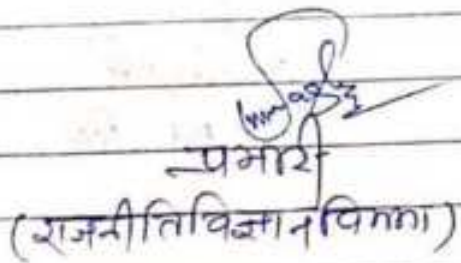 प्रभारी
(राजनीतिविज्ञान विभाग)